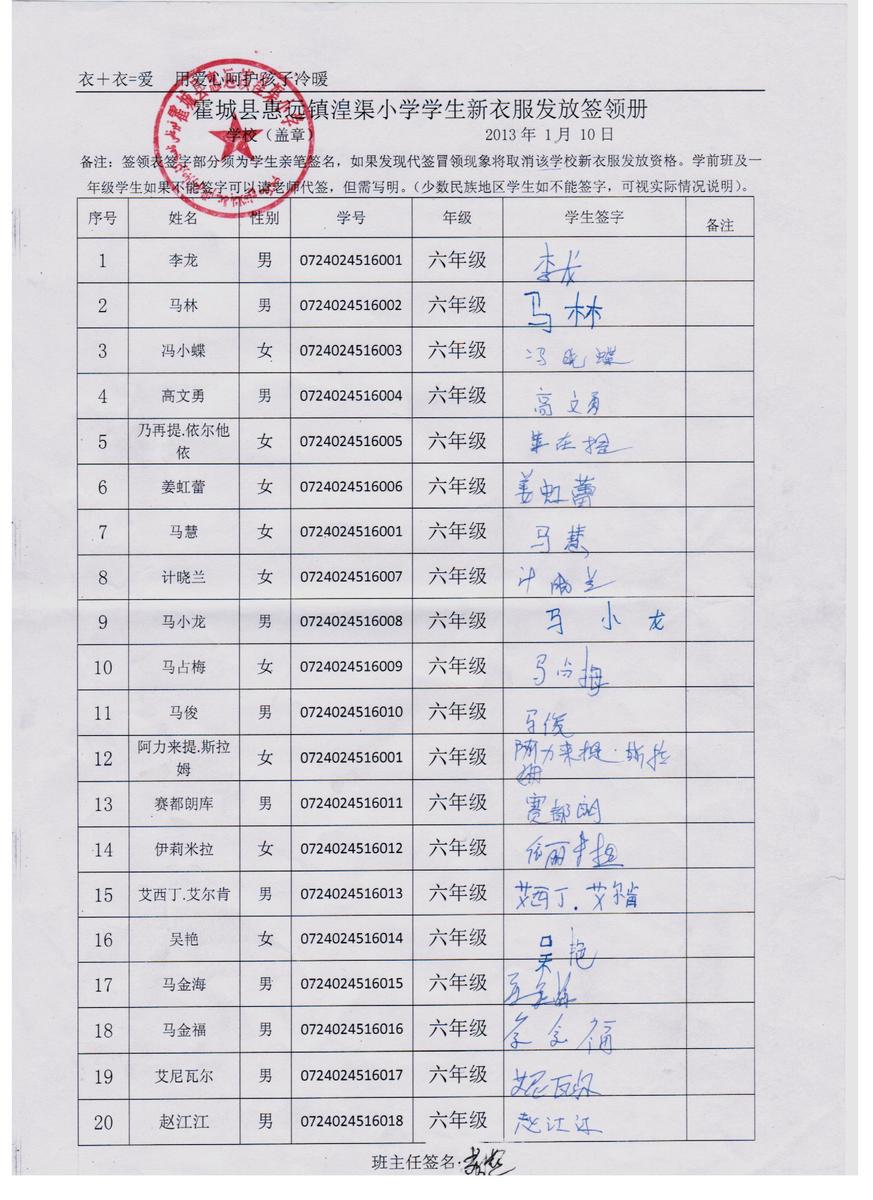 衣＋衣=爱 用爱心呵护孩子冷暖
霍城县惠远镇湟渠小学学生新衣服发放签领册
学校（盖章） 2013年1月10日
备注：签领表签字部分须为学生亲笔签名，如果发现代签冒领现象将取消该学校新衣服发放资格。学前班及一
年级学生如果不能签字可以请老师代签，但需写明。（少数民族地区学生如不能签字，可视实际情况说明）。
序号 姓名 性别 学号 年级 学生签字 备注
1 李龙 男 0724024516001 六年级 李龙
2 马林 男 0724024516002 六年级 马林
3 冯小蝶 女 0724024516003 六年级 冯晓蝶
4 高文勇 男 0724024516004 六年级 高文勇
5 乃再提.依尔他依 女 0724024516005 六年级
6 姜虹蕾 女 0724024516006 六年级 姜虹蕾
7 马慧 女 0724024516001 六年级 马慧
8 计晓兰 女 0724024516007 六年级 计晓兰
9 马小龙 男 0724024516008 六年级 马小龙
10 马占梅 女 0724024516009 六年级 马占梅
11 马俊 男 0724024516010 六年级 马俊
12 阿力来提.斯拉姆 女 0724024516001 六年级 阿力来提.斯拉姆
13 赛都朗库 男 0724024516011 六年级 赛都朗
14 伊莉米拉 女 0724024516012 六年级
15 艾西丁.艾尔肯 男 0724024516013 六年级 艾西丁.艾尔肯
16 吴艳 女 0724024516014 六年级 吴艳
17 马金海 男 0724024516015 六年级
18 马金福 男 0724024516016 六年级
19 艾尼瓦尔 男 0724024516017 六年级 艾尼瓦尔
20 赵江江 男 0724024516018 六年级 赵江江
班主任签名.